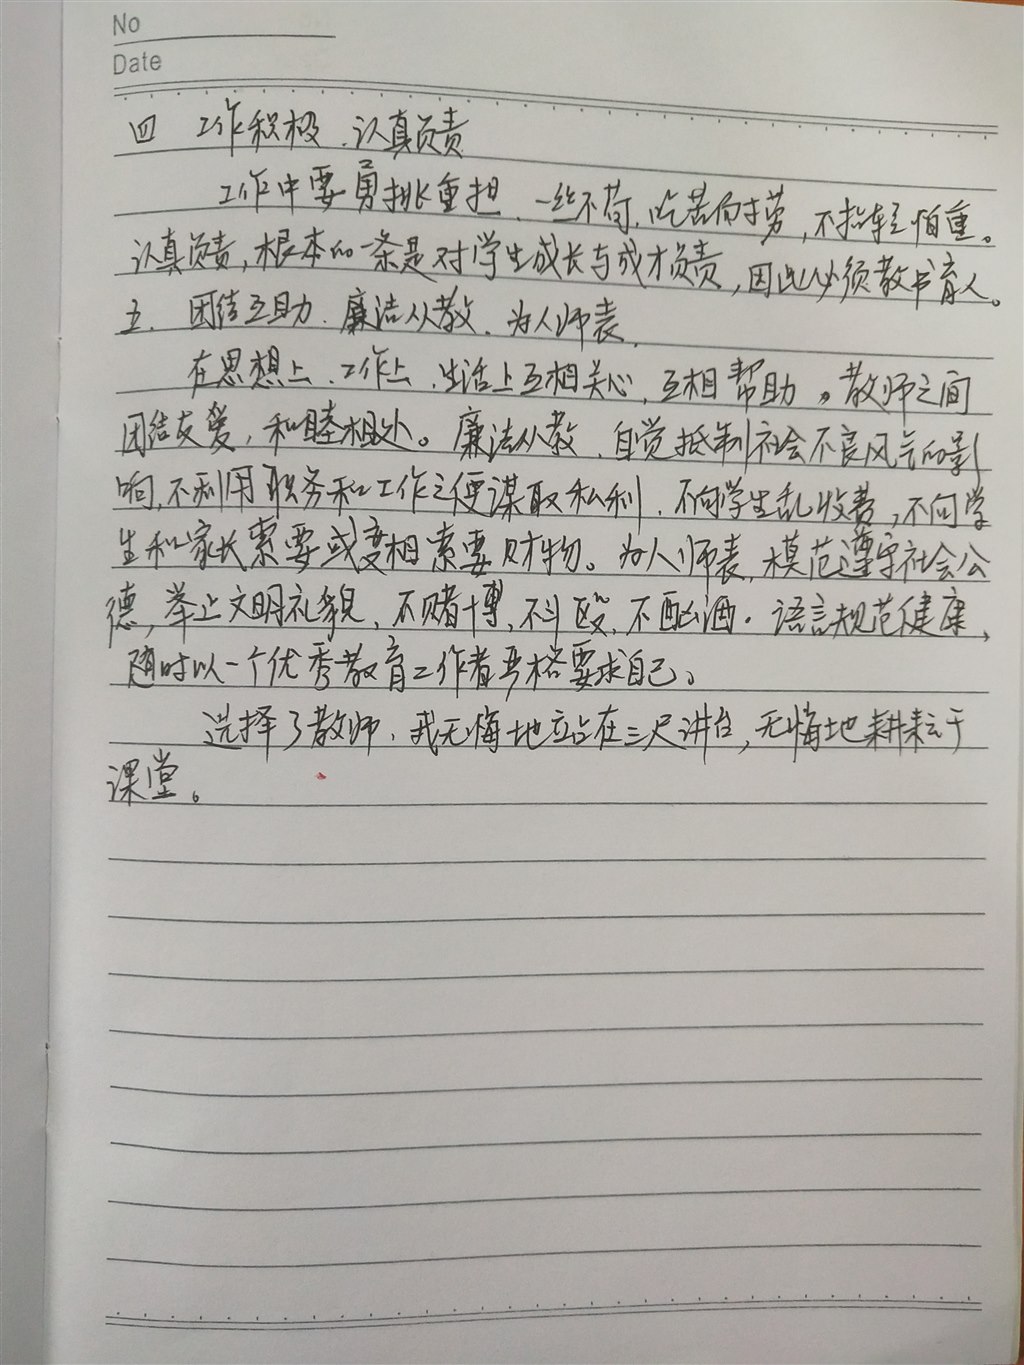 No
Date
四 工作积极、认真负责
工作中要勇挑重担、一丝不苟,吃苦耐劳,不拈轻怕重。
认真负责,根本的一条是对学生成长与成才负责,因此必须教书育人。
五、团结互助、廉洁从教、为人师表,
在思想上、工作上、生活上互相关心、互相帮助。教师之间
团结友爱,和睦相处。廉洁从教、自觉抵制社会不良风气的影
响,不利用职务和工作之便谋取私利、不向学生乱收费,不向学
生和家长索要或变相索要财物。为人师表,模范遵守社会公
德,举止文明礼貌,不赌博,不斗殴,不酗酒。语言规范健康,
随时以一个优秀教育工作者严格要求自己。
选择了教师,我无悔地站在三尺讲台,无悔地耕耘于
课堂。